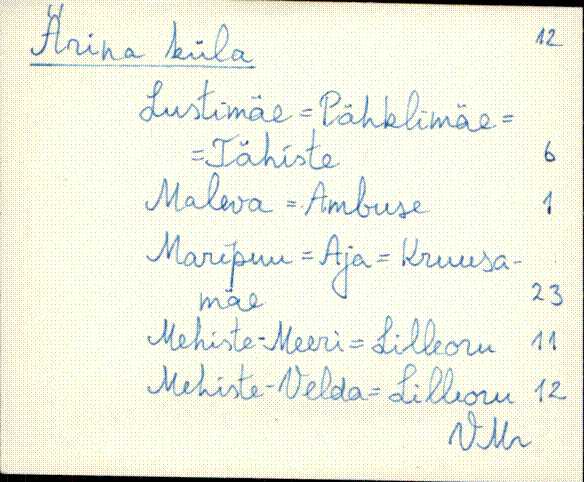 Ärina küla 12
Lustimäe = Pähklimäe =
= Tähiste 6
Maleva = Ambuse 1
Maripuu = Aja = Kruusa-
mäe 23
Mehiste-Meeri = Lilleoru 11
Mehiste-Velda = Lilleoru 12
VMr